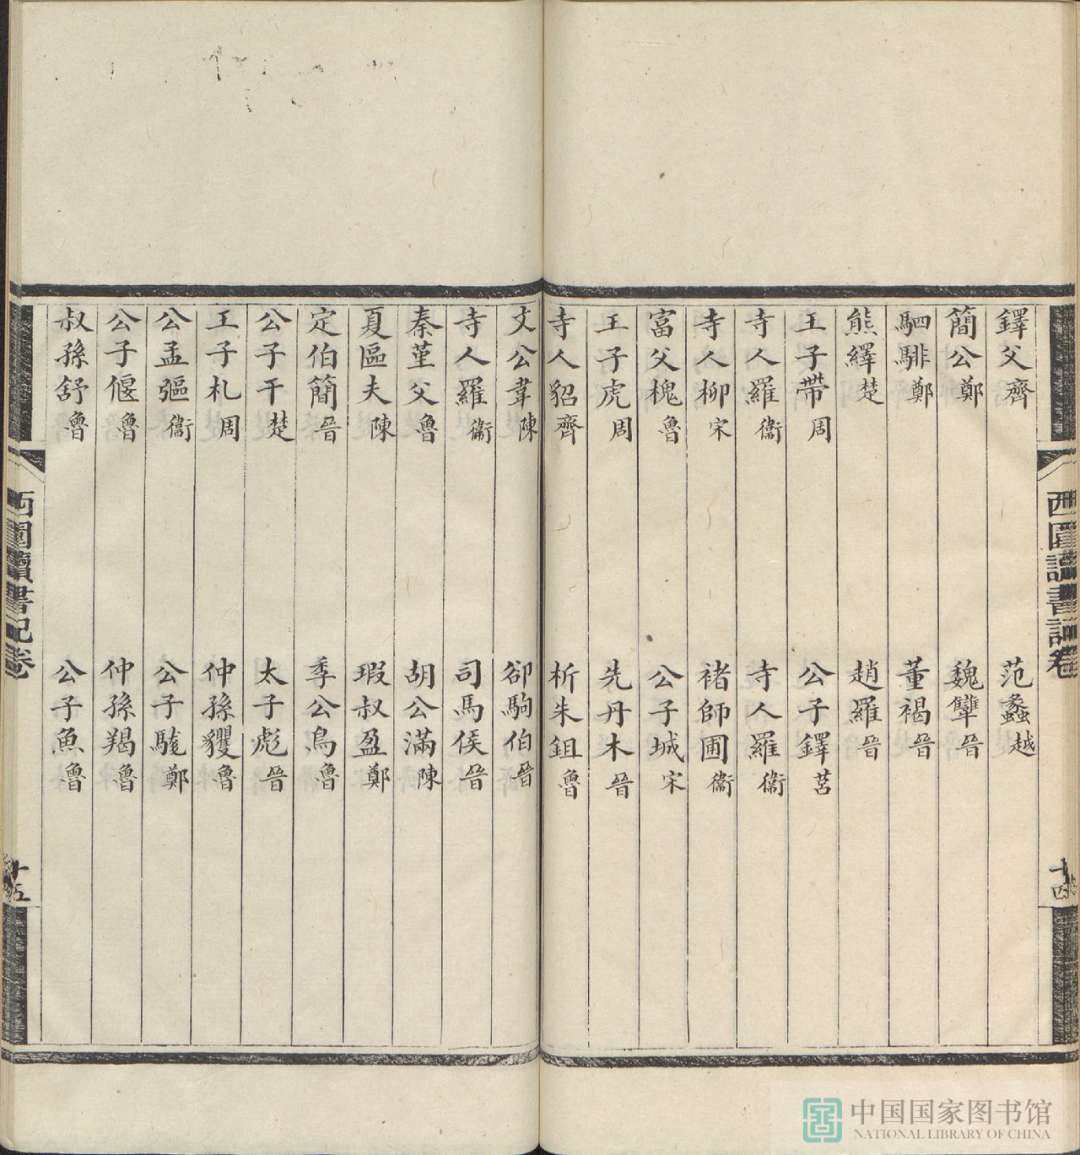 西圃讀書記卷
十四
鐸父齊 范蠡越
簡公鄭 魏犨晉
駟騑鄭 董褐晉
熊繹楚 趙羅晉
王子帶周 公子鐸莒
寺人羅衞 寺人羅衞
寺人柳宋 褚師圃衞
富父槐魯 公子城宋
王子虎周 先丹木晉
寺人貂齊 析朱鉏魯
文公韋陳 郤駒伯晉
寺人羅衞 司馬侯晉
秦堇父魯 胡公滿陳
夏區夫陳 瑕叔盈鄭
定伯簡晉 季公鳥魯
公子干楚 太子彪晉
王子札周 仲孫貜魯
公孟彄衞 公子騑鄭
公子偃魯 仲孫羯魯
叔孫舒魯 公子魚魯
西圃讀書記卷
十五
中国国家图书馆
NATIONAL LIBRARY OF CHINA